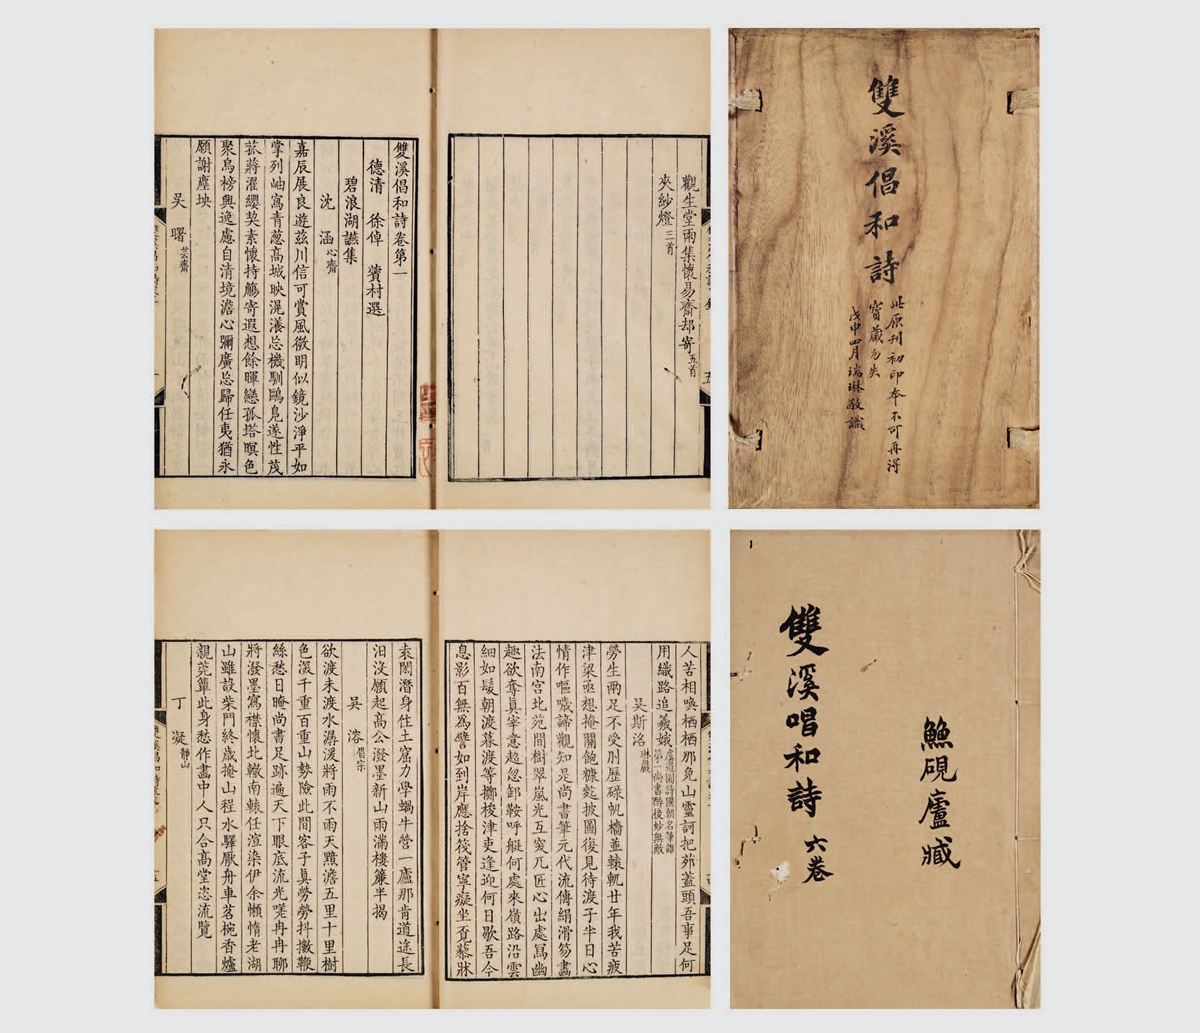 觀生堂雨集懷易齋却寄五首
夾紗燈三首
雙溪倡和詩卷第一
德清　徐倬　蘋村選
碧浪湖讌集
沈　涵心齋
嘉辰展良遊茲川信可賞風微明似鏡沙淨平如
掌列岫寫青葱高城映滉瀁忘機馴鷗鳧遂性茂
菰蔣濯纓契素懷持觴寄遐想餘暉戀孤塔暝色
聚烏榜興逸慮自清境澹心彌廣忘歸任夷猶永
願謝塵坱
吳　曙芸齋
雙溪倡和詩
此原刊初印本不可再得
寶藏勿失
戊申四月瑞琳敬識
人苦相喚栖栖那免山靈訶把茆蓋頭吾事足何
用織路追羲娥
吳斯洺琳巖
勞生兩足不受刖歷碌帆檣並轅軏廿年我苦疲
津梁亟想掩關飽糠麧披圖後見待渡子半日心
情作嘔噦諦觀知是尚書筆元代流傳絹滑笏畫
法南宮北苑間樹翠嵐光互窔兀匠心出處寫幽
趣欲奪真宰意超忽卸鞍呼艇何處來嶺路沿雲
細如髮朝渡暮渡等擲梭津吏逢迎何日歇吾今
息影百無為譬如到岸應捨筏管寧癡坐覓藜牀
袁閎潛身住土窟力學蝸牛營一廬那肯道途長
汨沒願起高公潑墨新山雨滿樓簾半揭
吳　溶眉宗
欲渡未渡水潺湲將雨不雨天黯澹五里十里樹
色深千重百重山勢險此間客子真勞勞抖擻鞭
絲愁日晻尚書足跡遍天下眼底流光嗟冉冉聊
將潑墨寫襟懷北轍南轅任渲染伊余懶惰老湖
山雖設柴門終歲掩山程水驛厭舟車茗椀香爐
親莞簟此身愁作畫中人只合高堂恣流覽
丁　凝靜山
鱻硯廬臧
雙溪唱和詩　六卷